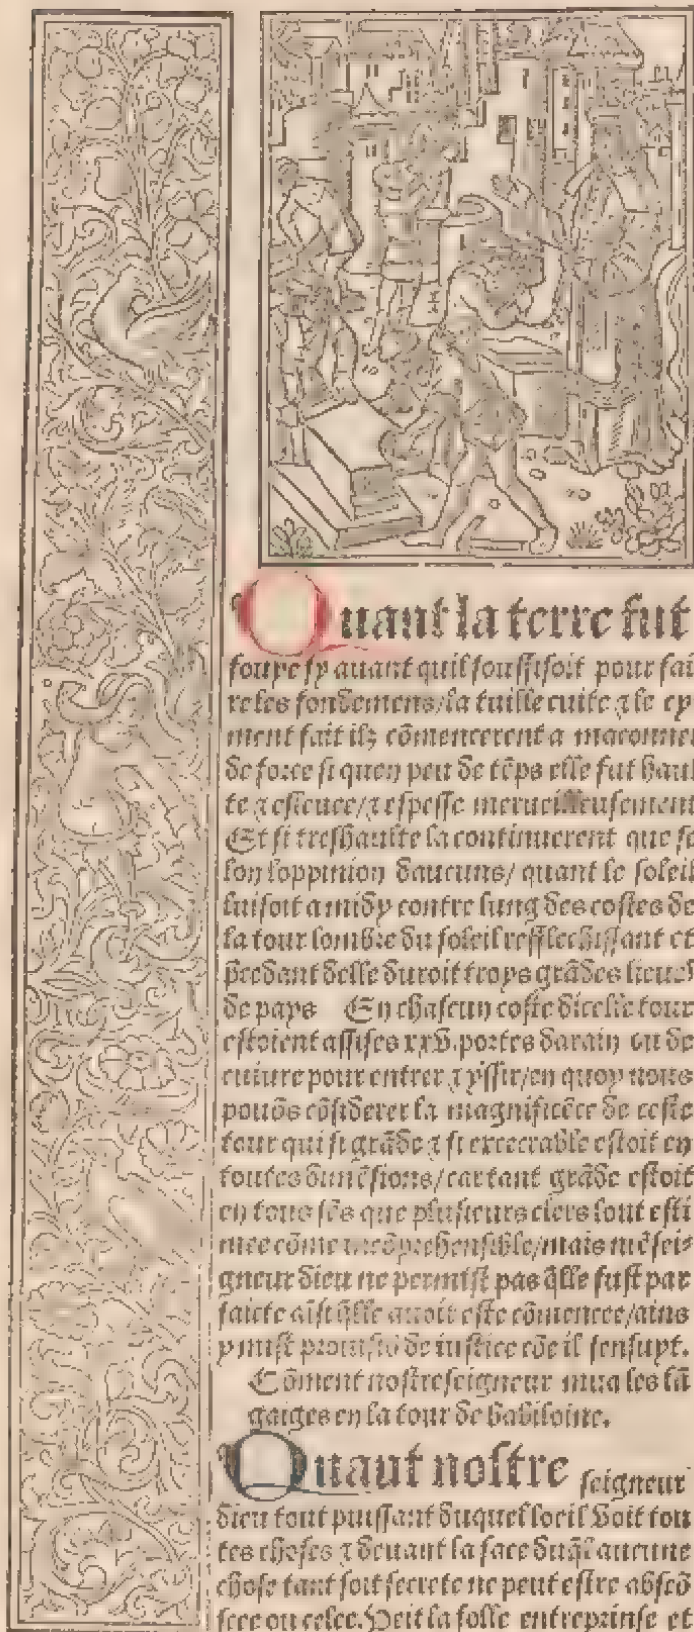 Quant la terre fut
fouye sy auant quil souffisoit pour fai
re les fondemens/la tuille cuite ⁊ le cy
ment fait ilz cõmencerent a maconner
de force si quen peu de tẽps elle fut haul
te ⁊ esleuee/⁊ espesse merueilleusement
Et si treshaulte la continuerent que se
lon loppinion daucuns/ quant le soleil
luisoit a midy contre lung des costes de
la tour lombre du soleil resflechissant et
delle duroit troys grãdes lieues
de pays En chascun coste dicelle tour
estoient assises xxv.portes darain ou de
cuiure pour entrer ⁊ yssir/en quoy nous
pouõs cõsiderer la magnificẽce de ceste
tour qui si grãde ⁊ si excecrable estoit en
toutes dimẽsions/car tant grãde estoit
en tous sẽs que plusieurs clers lont esti
mee cõme incõprehensible/mais
gneur dieu ne permist pas q̃lle fust par
faicte aĩsi q̃lle auoit este cõmencee/ains
y mist prouisiõ de iustice cõe il sensuyt.
Cõment nostreseigneur mua les lã
gaiges en la tour de babiloine.
Quant nostre seigneur
dieu tout puissant duquel loeil voit tou
tes choses ⁊ deuant la face duq̃l aucune
chose tant soit secrete ne peut estre abscõ
see ou celee.Veit la folle entreprinse et